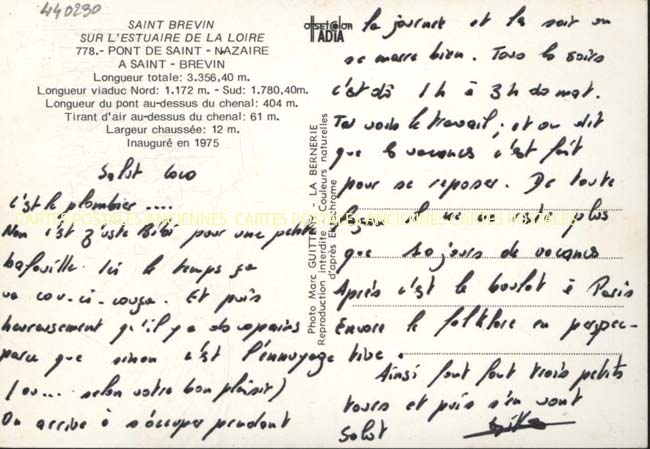 440230
SAINT BREVIN
SUR L'ESTUAIRE DE LA LOIRE
778.- PONT DE SAINT - NAZAIRE
A SAINT - BREVIN
Longueur totale: 3.356,40 m.
Longueur viaduc Nord: 1.172 m. - Sud: 1.780,40m.
Longueur du pont au-dessus du chenal: 404 m.
Tirant d'air au-dessus du chenal: 61 m.
Largeur chaussée: 12 m.
Inauguré en 1975
Salut coco
C'est le plombier ....
Non c'est juste pour une petite
bafouille. Ici le temps ça
va cou-ci-couça. Et puis
heureusement qu'il y a des copains
parce que sinon c'est l'ennuyage
(ou ... selon votre bon plaisir)
On arrive à s'occuper pendant
offset color
ADIA
Photo Marc GUITTENY - LA BERNERIE
Reproduction interdite - Couleurs naturelles
d'après Ektachrome
la journée et le soir on
se marre bien. Tous les soirs
c'est dô 1h à 3h du mat.
Tu vois le travail ; et on dit
que les vacances c'est fait
pour se reposer. De toute
façon il ne me reste plus
que 10 jours de vacances
Après c'est le boulot à Paris
Encore le folklore en perspec-
tive.
Ainsi font font trois petits
tours et puis s'en vont
Salut
CARTES POSTALES ANCIENNES CARTES POSTALES ANCIENNES CARTES POSTALES ANCIENNES